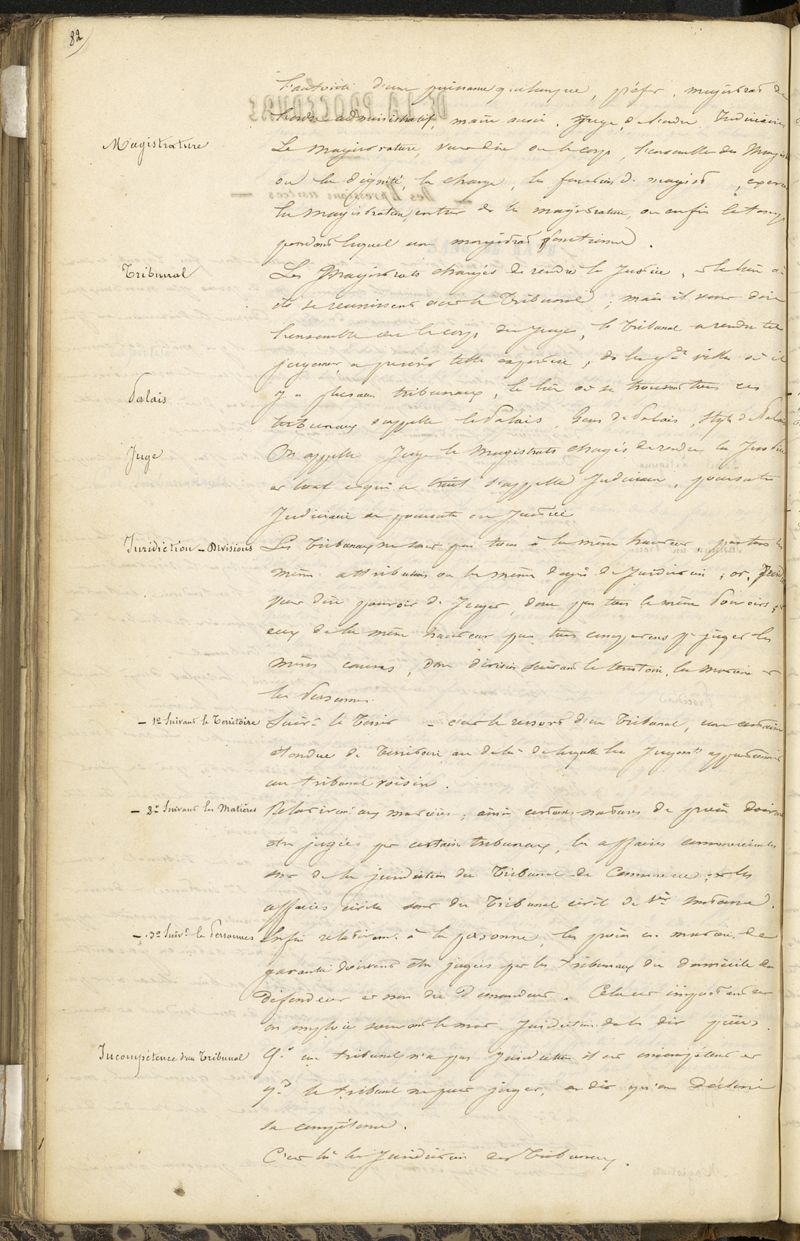 82
l'autorité d'une puissance quelconque, préfet, magistrat de
l'ordre administratif, maire aussi, juge, de l'ordre Judiciaire
Magistrature
La magistrature veut dire ou le corps, l'ensemble des Mag
ou la dignité, la charge, les fonctions de magist , exerc
la magistrature, entrer de la magistrature, ou enfin le temps
pendant lequel un magistrat fonctionne.
Tribunal
Les Magistrats chargés de rendre la Justice, et le lieu où
ils se réunissent c'est le Tribunal ; mais il veut dire
l'ensemble ou le corps des juges, le Tribunal a rendu tel
jugement, a telle expertise, ds les gdes villes où il
Palais
y a plusieurs tribunaux, le lieu où se trouvent tous ces
tribunaux s'appelle le Palais, Gens de Palais, Style de Palais
Juge
On appelle Juge le Magistrats chargés de rendre la Justice
et tout ce qui a trait s'appelle Judiciaire, poursuite
Judiciaire ou poursuite en Justice
Juridiction - Divisions
Les Tribunaux ne sont pas tous à la même hauteur, pas tous les
même attributions ou le même degré de Juridiction, or,
veut dire pouvoir de Juger, donc pas tous le même Pouvoirs,
ceux de la même hauteur pas tous compétens pr juger les
mêmes causes, donc division suivant le territoire, la matière et
les Personnes.
- 1º Suivant le Territoire
Suivt le Territ - c'est le ressort d'un Tribunal, une certaine
étendue de Territoire au delà de laquelle les Jugemts appartiennent
au tribunal voisin.
- 2º Suivant les Matières
Relativemt aux matières, ainsi certaines natures de procès doivent
être jugées par certain tribunaux, les affaires commerciales
st de la juridiction du Tribunal de Commerce, et les
affaires civiles sont du Tribunal civil de 1ère instance.
- 3º Suivt les Personnes
Enfin relativemt à la personne, les procès en matière de
garantie doivent être jugées par les tribunaux du domicile du
Défendeur et non du Demandeur. Cela est important car
on emploie souvent le mot Juridiction de la dix
Incompétence d'un Tribunal
Qd un tribunal n'a pas Juridiction il est incompétent et
qd le tribunal ne peut juger, on dit qu'on Décline
sa compétence.
C'est là la Juridiction des Tribunaux.